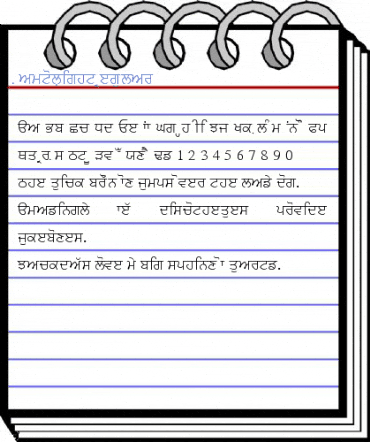 . ਅਮਟੋਲ਼ਗਿਹਟ ੍ਰੲਗੁਲਅਰ
ੳਅ ਭਬ ਛਚ ਧਦ ਓੲ ਾਂ ਘਗ ੍ਹਹ ੀ ਿ ਝਜ ਖਕ ਲ਼ਲ ੰਮ ਂਨ ੌੋ ਫਪ
ਥਤ ੍ਰਰ ਸ਼ਸ ਠਟ ੂੁ ੜਵ ੱ ਯਣ ੈੇ ਢਡ 1 2 3 4 5 6 7 8 9 0
ਠਹੲ ਤੁਚਿਕ ਬਰੌਨ ੋਣ ਜੁਮਪਸ ੋਵੲਰ ਟਹੲ ਲਅਡੇ ਦੋਗ.
ੳਮਅਡਨਿਗਲੇ ਾੲੱ ਦਸਿਚੋਟਹੲਤੁੲਸ ਪਰੋਵਦਿੲ
ਜੁਕੲਬੋਣੲਸ.
ਝਅਚਕਦਅੱਸ ਲੋਵੲ ਮੇ ਬਗਿ ਸਪਹਨਿਣ ੋਾ ਤੁਅਰਟਡ.